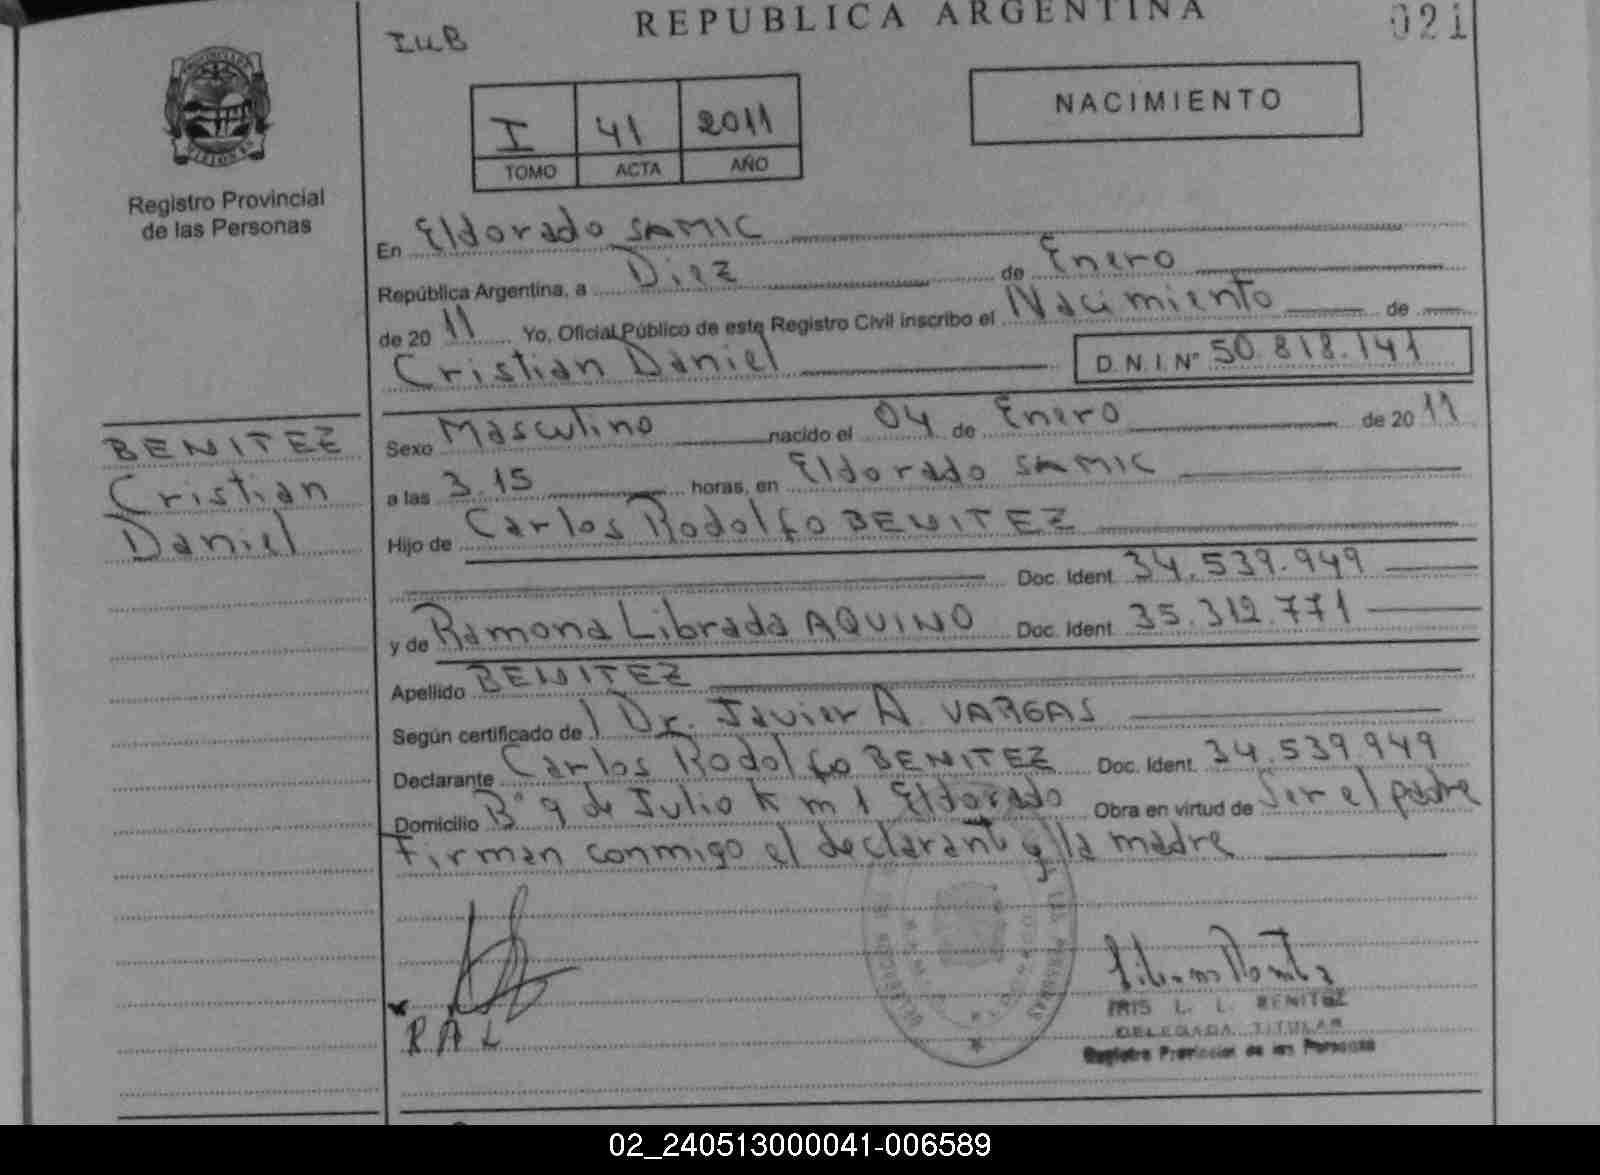 REPUBLICA ARGENTINA
021
IUB
I 41 2011
TOMO ACTA AÑO
NACIMIENTO
MISIONES
Registro Provincial
de las Personas
En Eldorado SAMIC
República Argentina, a Diez de Enero
de 2011 Yo, Oficial Público de este Registro Civil inscribo el Nacimiento de
Cristian Daniel D.N.I. N° 50.818.141
BENITEZ
Cristian
Daniel
Sexo Masculino nacido el 04 de Enero de 2011
a las 3.15 horas, en Eldorado SAMIC
Hijo de Carlos Rodolfo BENITEZ
Doc. Ident. 34.539.949
y de Ramona Librada AQUINO Doc. Ident. 35.312.771
Apellido BENITEZ
Según certificado de / Dr. Javier A. VARGAS
Declarante Carlos Rodolfo BENITEZ Doc. Ident. 34.539.949
Domicilio B° 9 de Julio Km 1 Eldorado Obra en virtud de Ser el padre
Firman conmigo el declarante y la madre
R A L
IRIS L. L. BENITEZ
DELEGADA TITULAR
Registro Provincial de las Personas
02_240513000041-006589